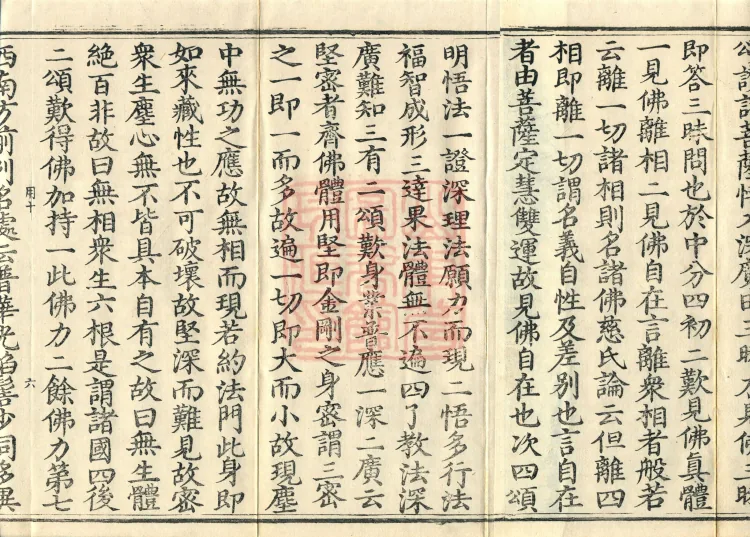 頌
即答三昧問也於中分四初二歎見佛真體
一見佛離相二見佛自在言離衆相者般若
云離一切諸相則名諸佛慈氏論云但離四
相即離一切謂名義自性及差別也言自在
者由菩薩定慧雙運故見佛自在也次四頌
明悟法一證深理法願力而現二悟多行法
福智成形三達果法體無不遍四了教法深
廣難知三有二頌歎身業普應一深二廣云
堅密者齊佛體用堅即金剛之身密謂三密
之一即一而多故遍一切即大而小故現塵
中無功之應故無相而現若約法門此身即
如來藏性也不可破壞故堅深而難見故密
衆生塵心無不皆具本自有之故曰無生體
絶百非故曰無相衆生六根是謂諸國四後
二頌歎得佛加持一此佛力二餘佛力第七
用十
六
西南方前列名處云普華光焰髻